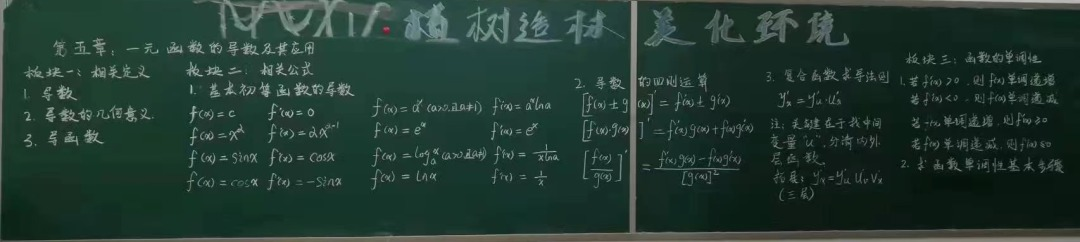 植树造林 美化环境
第五章：一元函数的导数及其应用
板块一：相关定义
1. 导数
2. 导数的几何意义
3. 导函数
板块二：相关公式
1. 基本初等函数的导数
f(x)=c f'(x)=0
f(x)=x^α f'(x)=αx^(α-1)
f(x)=sinx f'(x)=cosx
f(x)=cosx f'(x)=-sinx
f(x)=a^x (a>0且a≠1) f'(x)=a^x lna
f(x)=e^x f'(x)=e^x
f(x)=log_a x (a>0且a≠1) f'(x)=1/(xlna)
f(x)=lnx f'(x)=1/x
2. 导数的四则运算
[f(x)±g(x)]'=f'(x)±g'(x)
[f(x)·g(x)]'=f'(x)g(x)+f(x)g'(x)
[f(x)/g(x)]'=(f'(x)g(x)-f(x)g'(x))/[g(x)]²
3. 复合函数求导法则
y'x=y'u·u'x
注：关键在于找中间
变量"u"，分清内外
层函数
拓展：y'x=y'u u'v v'x
(三层)
板块三：函数的单调性
1. 若f'(x)>0，则f(x)单调递增
若f'(x)<0，则f(x)单调递减
若f(x)单调递增，则f'(x)≥0
若f(x)单调递减，则f'(x)≤0
2. 求函数单调性基本步骤